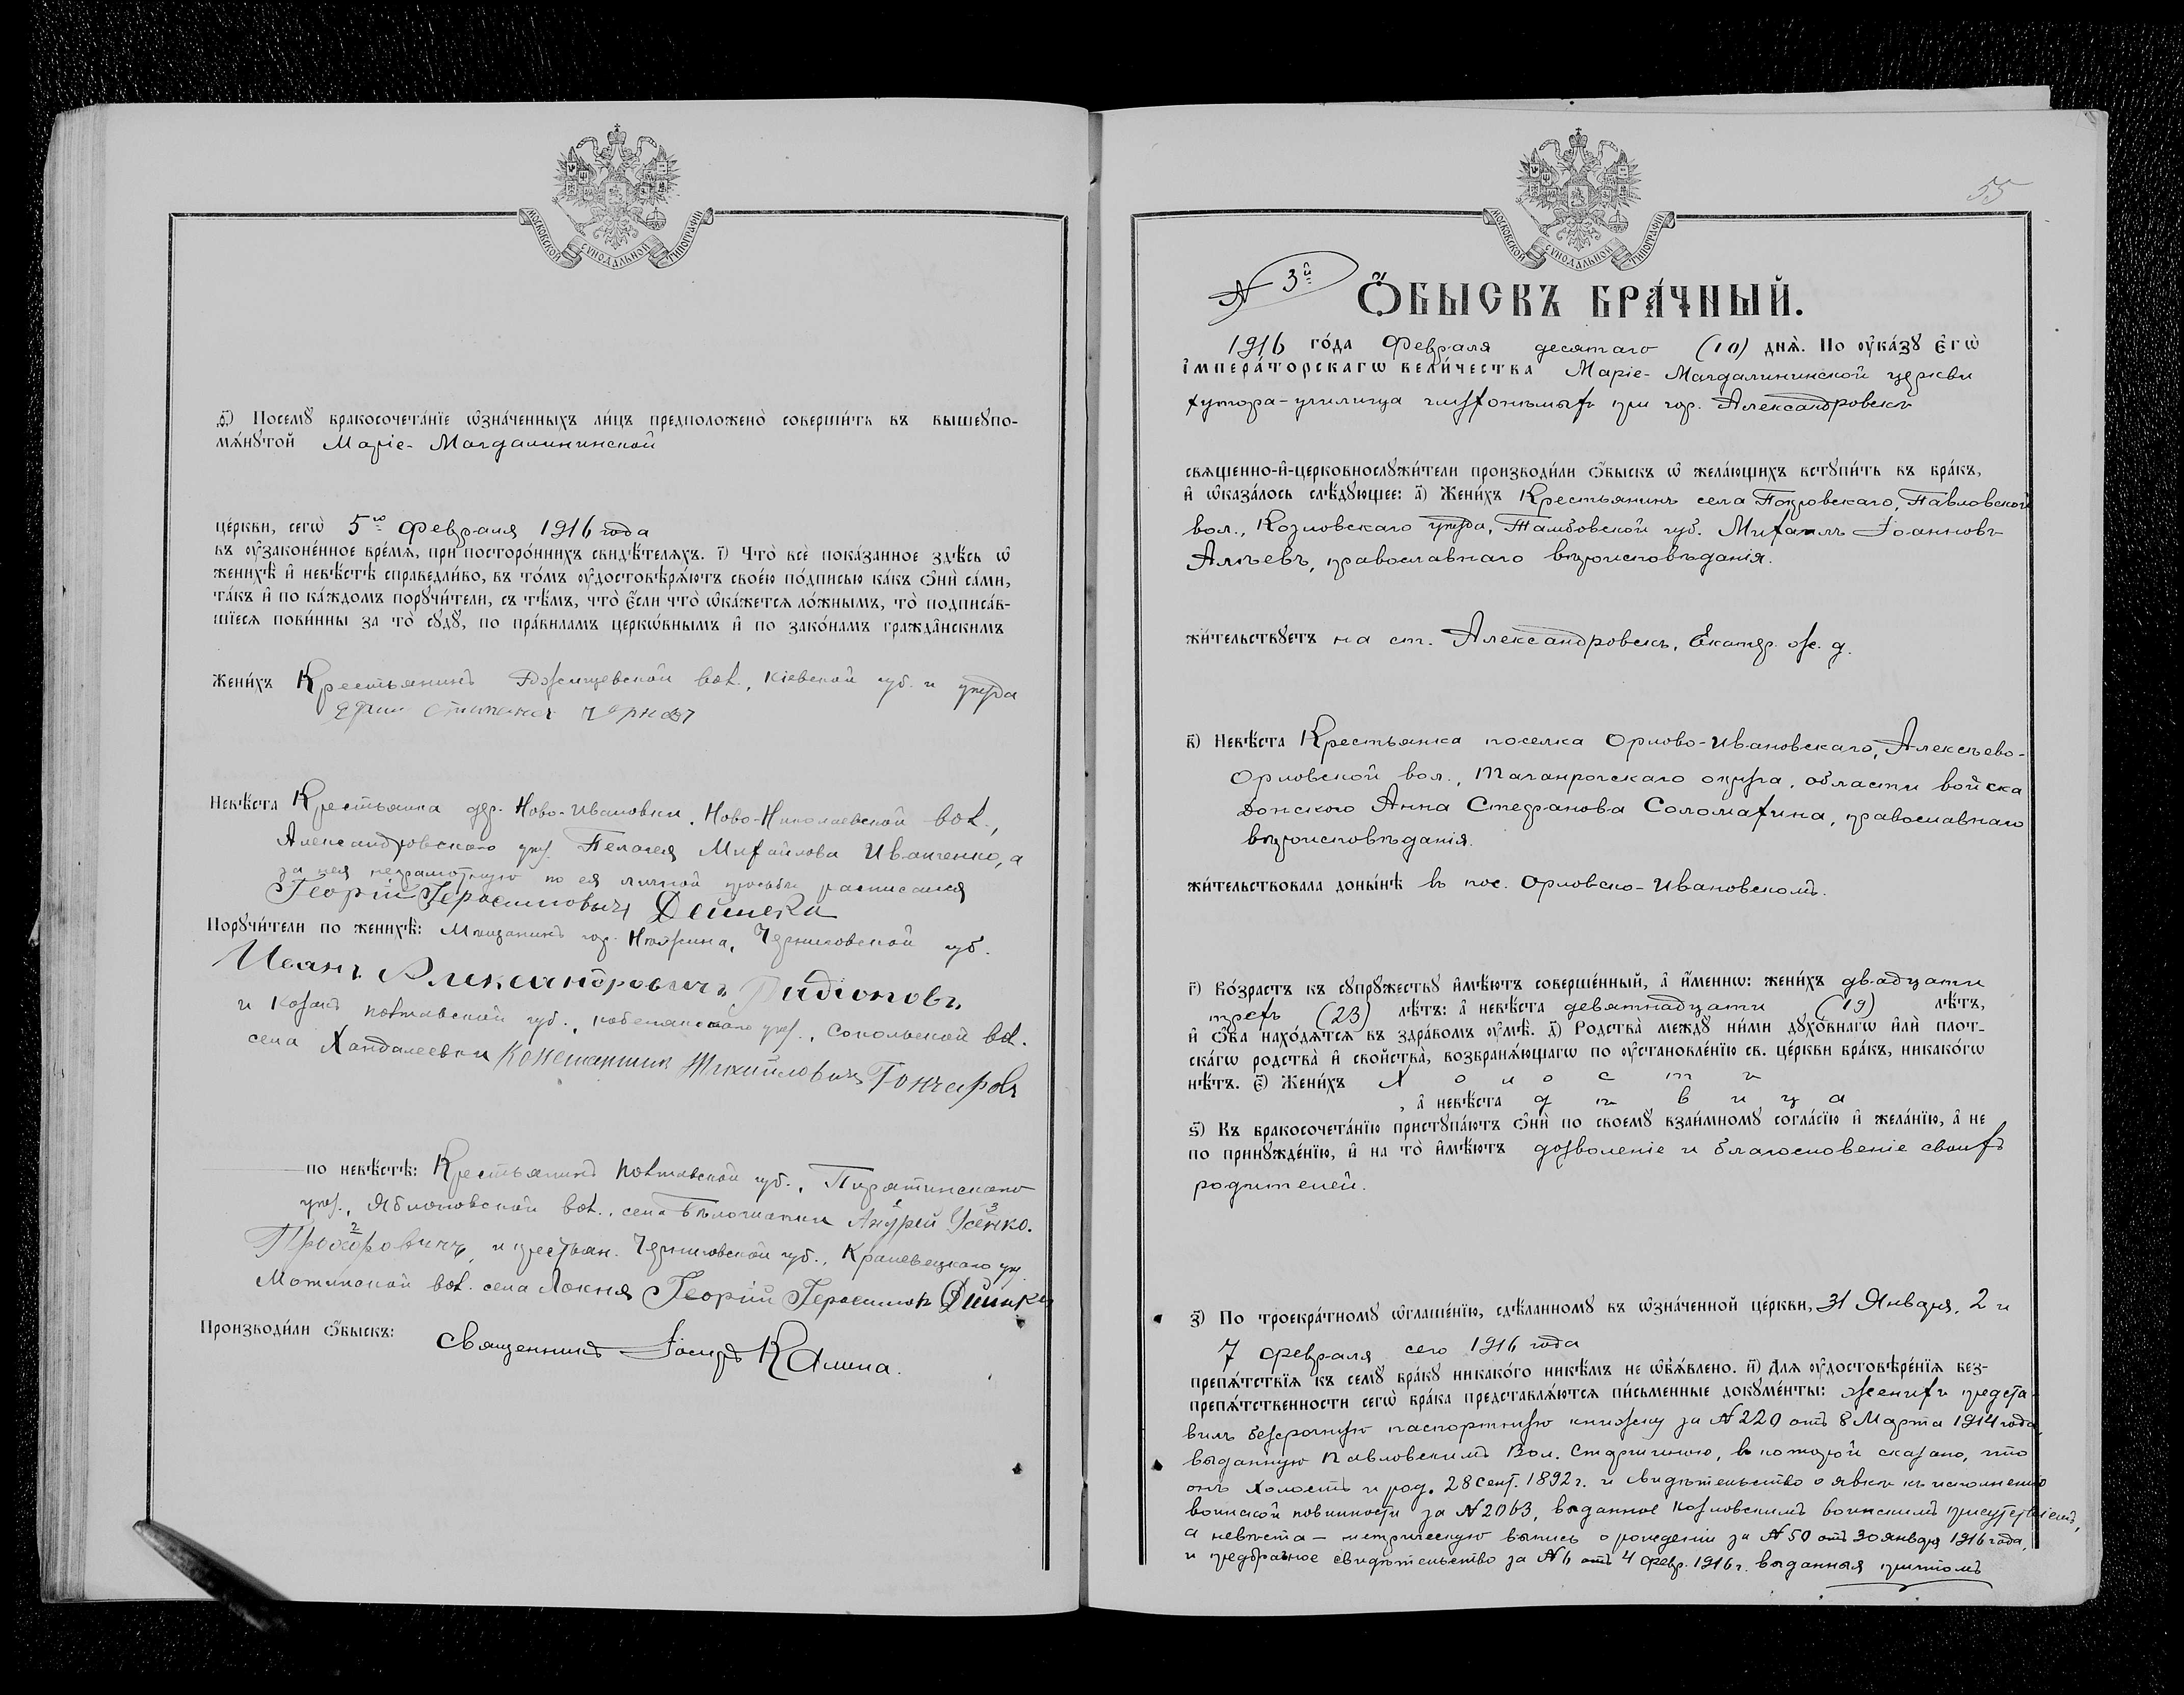 МОСКОВСКОЙ СѴНОДАЛЬНОЙ ТИПОГРАФІИ
Посемꙋ̀ бракосочета́нїе ѡ҆зна́ченныхъ ли́цъ предположено̀ соверши́ть въ вышеꙋпо-
мѧ́нꙋтой Маріе-Магдалининской
це́ркви, сегѡ̀ 5го Февраля 1916 года
въ ᲂу҆зако́нное вре́мѧ, при посторо́ннихъ свидѣ́телѧхъ. і҃) Что̀ всѐ пока́занное здѣ́сь ѡ҆
женихѣ̀ и҆ невѣ́стѣ справедли́во, въ то́мъ ᲂу҆достовѣрѧ́ютъ свое́ю по́дписью ка́къ ѻ҆нѝ са́ми,
та́къ и҆ по ка́ждомъ порꙋчи́тели, съ тѣ́мъ, что̀ є҆́сли что̀ ѡ҆ка́жется ло́жнымъ, то̀ подписа́в-
шїеся пови́нны за то̀ сꙋдꙋ̀, по пра́виламъ церкѡ́внымъ и҆ по зако́намъ гражда̑нскимъ
Жени́хъ Крестьянинъ Ржищевской вол., Кіевской губ. и уезда
Невѣ́ста Крестьянка дер. Ново-Ивановки, Ново-Николаевской вол.,
Александровского уез. Пелагея Михайлова Иванченко, а
за нея неграмотную по ея личной просьбе расписался
Георгій Герасимовичъ Дейнека
Порꙋчи́тели по женихѣ̀: Мещанинъ гор. Нежина, Черниговской губ.
Иванъ Александровичъ
и козакъ Полтавской губ., Кобелякскаго уез., Сокольской вол.
села Хандалеевки Константин Михайловичъ Гончаровъ
по невѣ́стѣ: Крестьянинъ Полтавской губ., Пирятинскаго
уез., Яблоновской вол., села Андрей Усенко.
1 3
2
Прохоровичъ, и крестьян. Черниговской губ., Кролевецкаго уез.
вол. села Локня Георгій Герасимов Дейнека
Производи́ли ѻ҆́быскъ: Священникъ Іосифъ Калина.
55
МОСКОВСКОЙ СѴНОДАЛЬНОЙ ТИПОГРАФІИ
№ 3й
Ѻ҆́БЫСКЪ БРА́ЧНЫЙ.
1916 го́да Февраля десятаго (10) днѧ̀. По ᲂу҆ка́зꙋ Є҆гѡ̀
І҆мпера́торскагѡ вели́чества Маріе-Магдалининской церкви
хутора-училища глухонемыхъ при гор. Александровске
свѧще́нно-и҆-церковнослꙋжи́тели производи́ли ѻ҆́быскъ ѡ҆ жела́ющихъ встꙋпи́ть въ бра́къ,
и҆ ѡ҆каза́лось слѣ́дꙋющее: а҃) Жени́хъ Крестьянинъ села Покровскаго, Павловской
вол., Козловскаго уезда, Тамбовской губ. Михаилъ Іоанновъ
Алѣевъ, православнаго вѣроисповѣданія.
жи́тельствꙋетъ на ст. Александровскъ, Екатер. ж. д.
в҃) Невѣ́ста Крестьянка поселка Орлово-Ивановскаго, Алексѣево-
Орловской вол., Таганрогскаго округа, области войска
Донского Анна Стефанова Соломахина, православнаго
вѣроисповѣданія.
жи́тельствовала доны́нѣ в пос. Орловско-Ивановскомъ.
г҃) Во́зрастъ къ сꙋпрꙋ́жествꙋ и҆мѣ́ютъ соверше́нный, а҆ и҆́меннѡ: жени́хъ двадцати
трехъ (23) лѣ́тъ: а҆ невѣ́ста девятнадцати (19) лѣ́тъ,
и҆ ѻ҆́ба нахо́дѧтсѧ въ здра́вомъ ᲂу҆мѣ̀. д҃) Родства̀ междꙋ̀ ни́ми дꙋхо́внагѡ и҆лѝ плот-
ска́гѡ родства̀ и҆ сво́йства̀, возбранѧ́ющагѡ по ᲂу҆становле́нїю св. це́ркви бра́къ, никако́гѡ
нѣ́тъ. є҃) Жени́хъ холостъ
, а҆ невѣ́ста дѣвица
ѕ҃) Къ бракосочета́нїю пристꙋпа́ютъ ѻ҆нѝ по своемꙋ̀ взаи́мномꙋ согла́сїю и҆ жела́нїю, а҆ не
по принꙋжде́нїю, и҆ на то̀ и҆мѣ́ютъ дозволеніе и благословеніе своихъ
родителей.
з҃) По троекра́тномꙋ ѡ҆глаше́нїю, сдѣ́ланномꙋ въ ѡ҆зна́ченной це́ркви, 31 Января, 2 и
7 февраля сего 1916 года
препѧ́тствїѧ къ семꙋ̀ бра́кꙋ никако́го никѣ́мъ не ѡ҆б̾ѧ́влено. и҃) Для ᲂу҆достовѣре́нїѧ без-
препѧ́тственности сегѡ̀ бра́ка представлѧ́ются пи́сьменные докꙋме́нты: женихъ предста-
вилъ безсрочную паспортную книжку за № 220 отъ 8 Марта 1914 года,
выданную Павловскимъ Вол. Старшиною, в которой сказано, что
онъ холостъ и род. 28 Сент. 1892 г. и свидѣтельство о явке къ исполненію
воинской повинности за № 2063, выданное Козловскимъ воинскимъ присутствіемъ,
а невѣста – метрическую выпись о рожденіи за № 50 отъ 30 января 1916 года,
и предбрачное свидѣтельство за № 6 отъ 4 февр. 1916 г. выданныя причтомъ